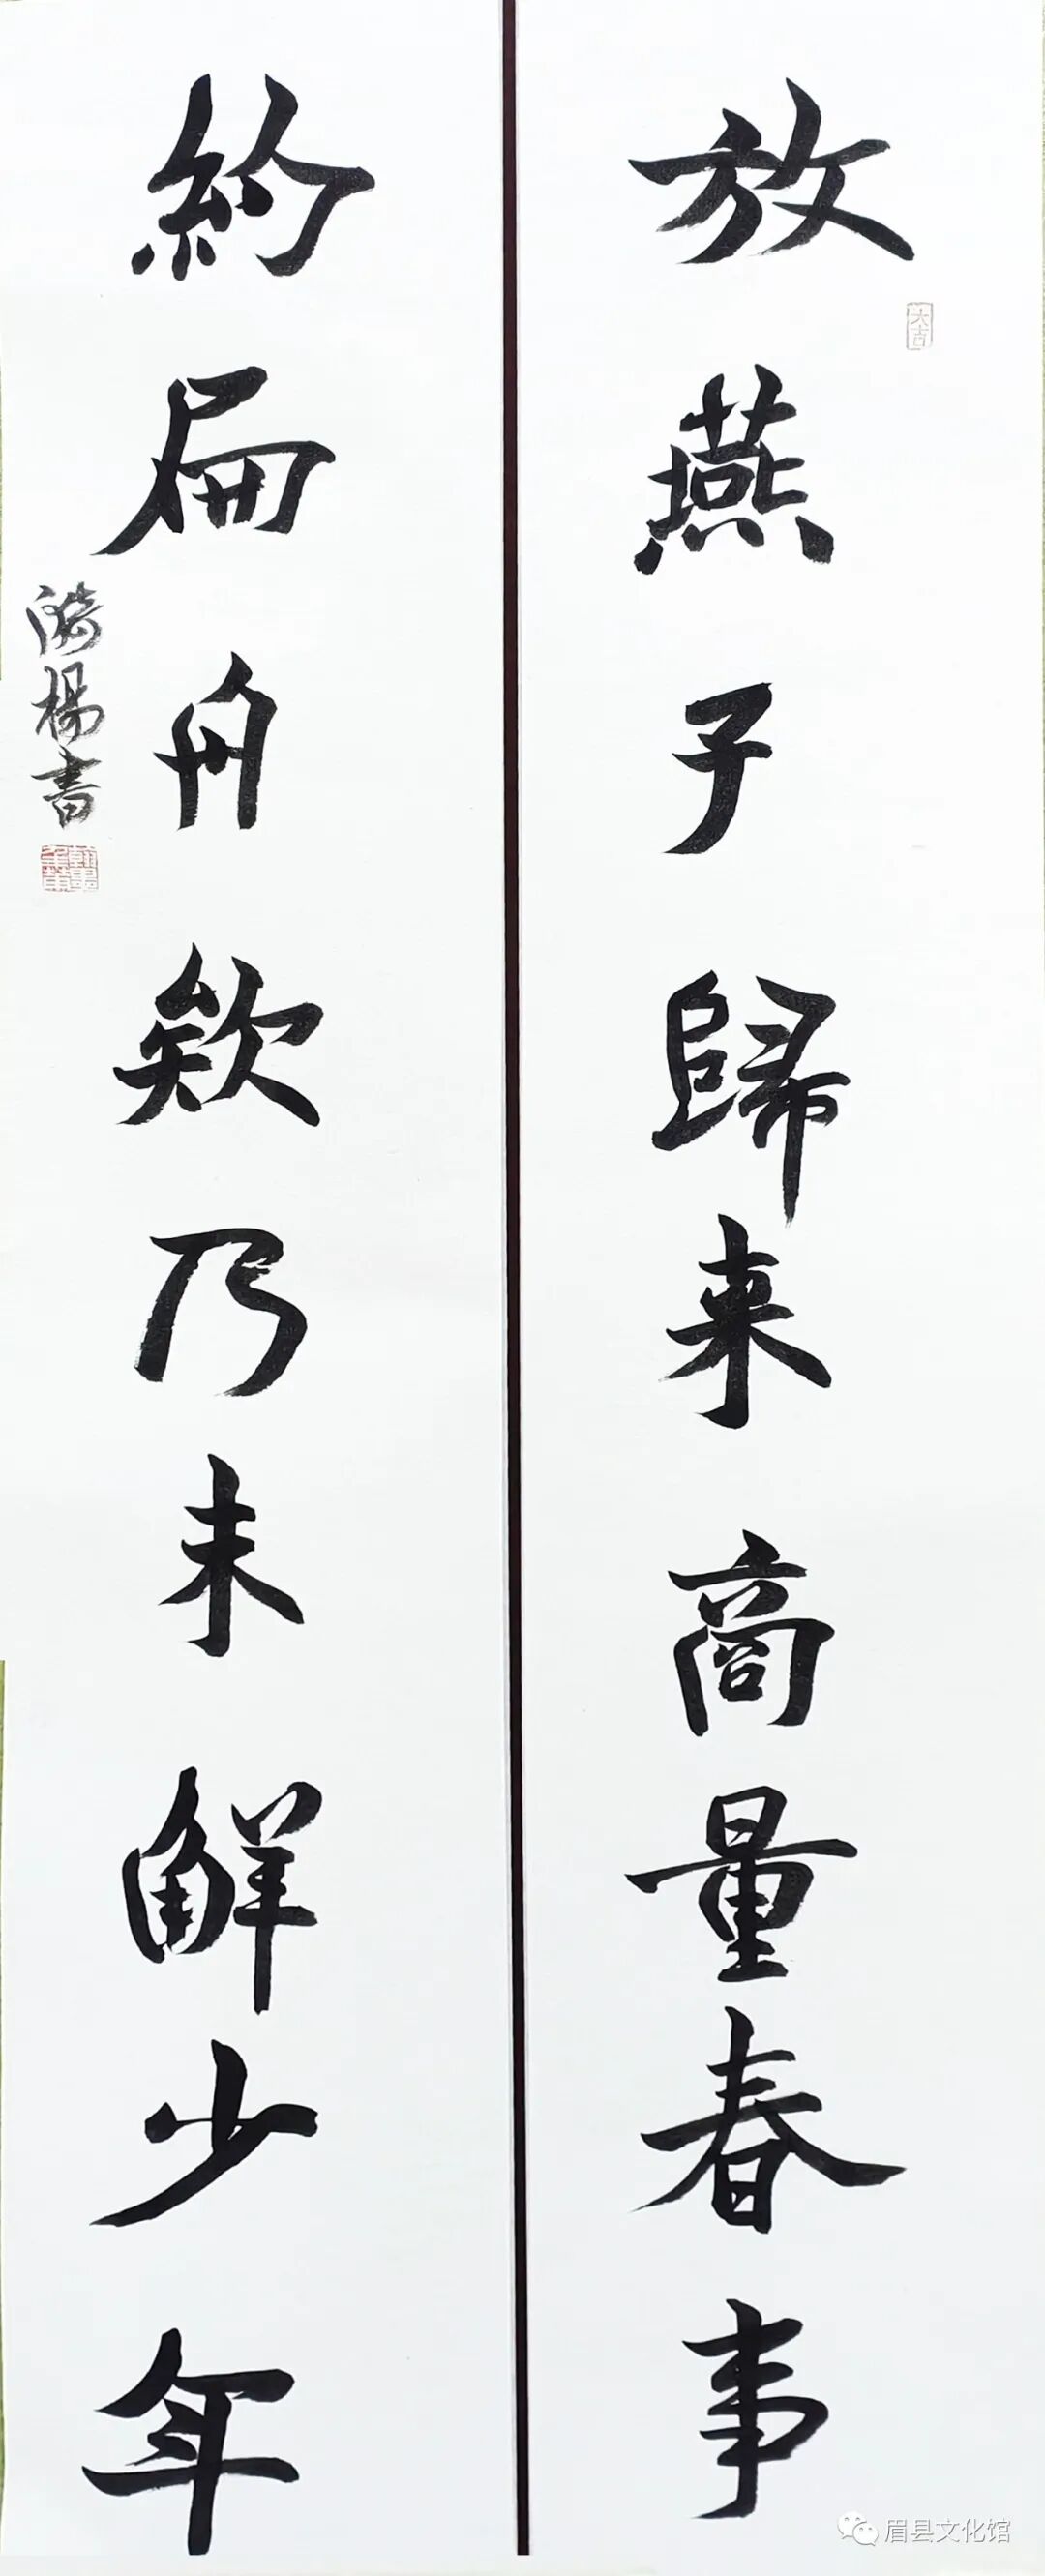 放燕子歸来商量春事
大吉
約扁舟欸乃未觧少年
楊書
眉县文化馆